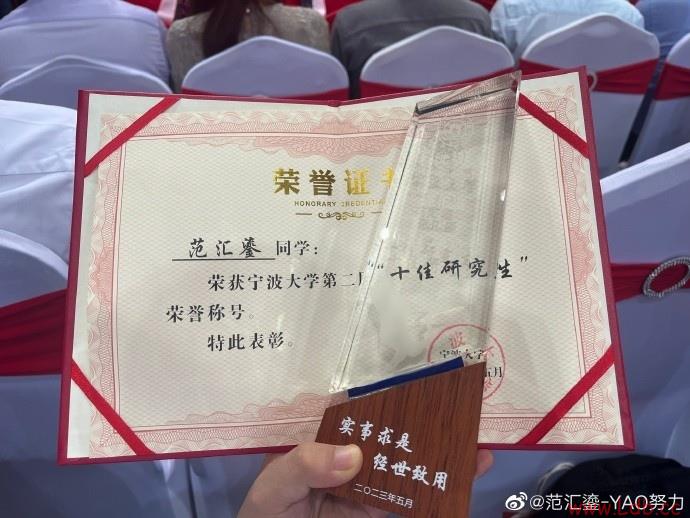 荣誉证书
HONORARY CREDENTIAL
范汇鎏 同学：
荣获宁波大学第二届“十佳研究生”
荣誉称号。
特此表彰。
宁波大学
五月
实事求是
经世致用
二〇二三年五月
@范汇鎏-YAO努力